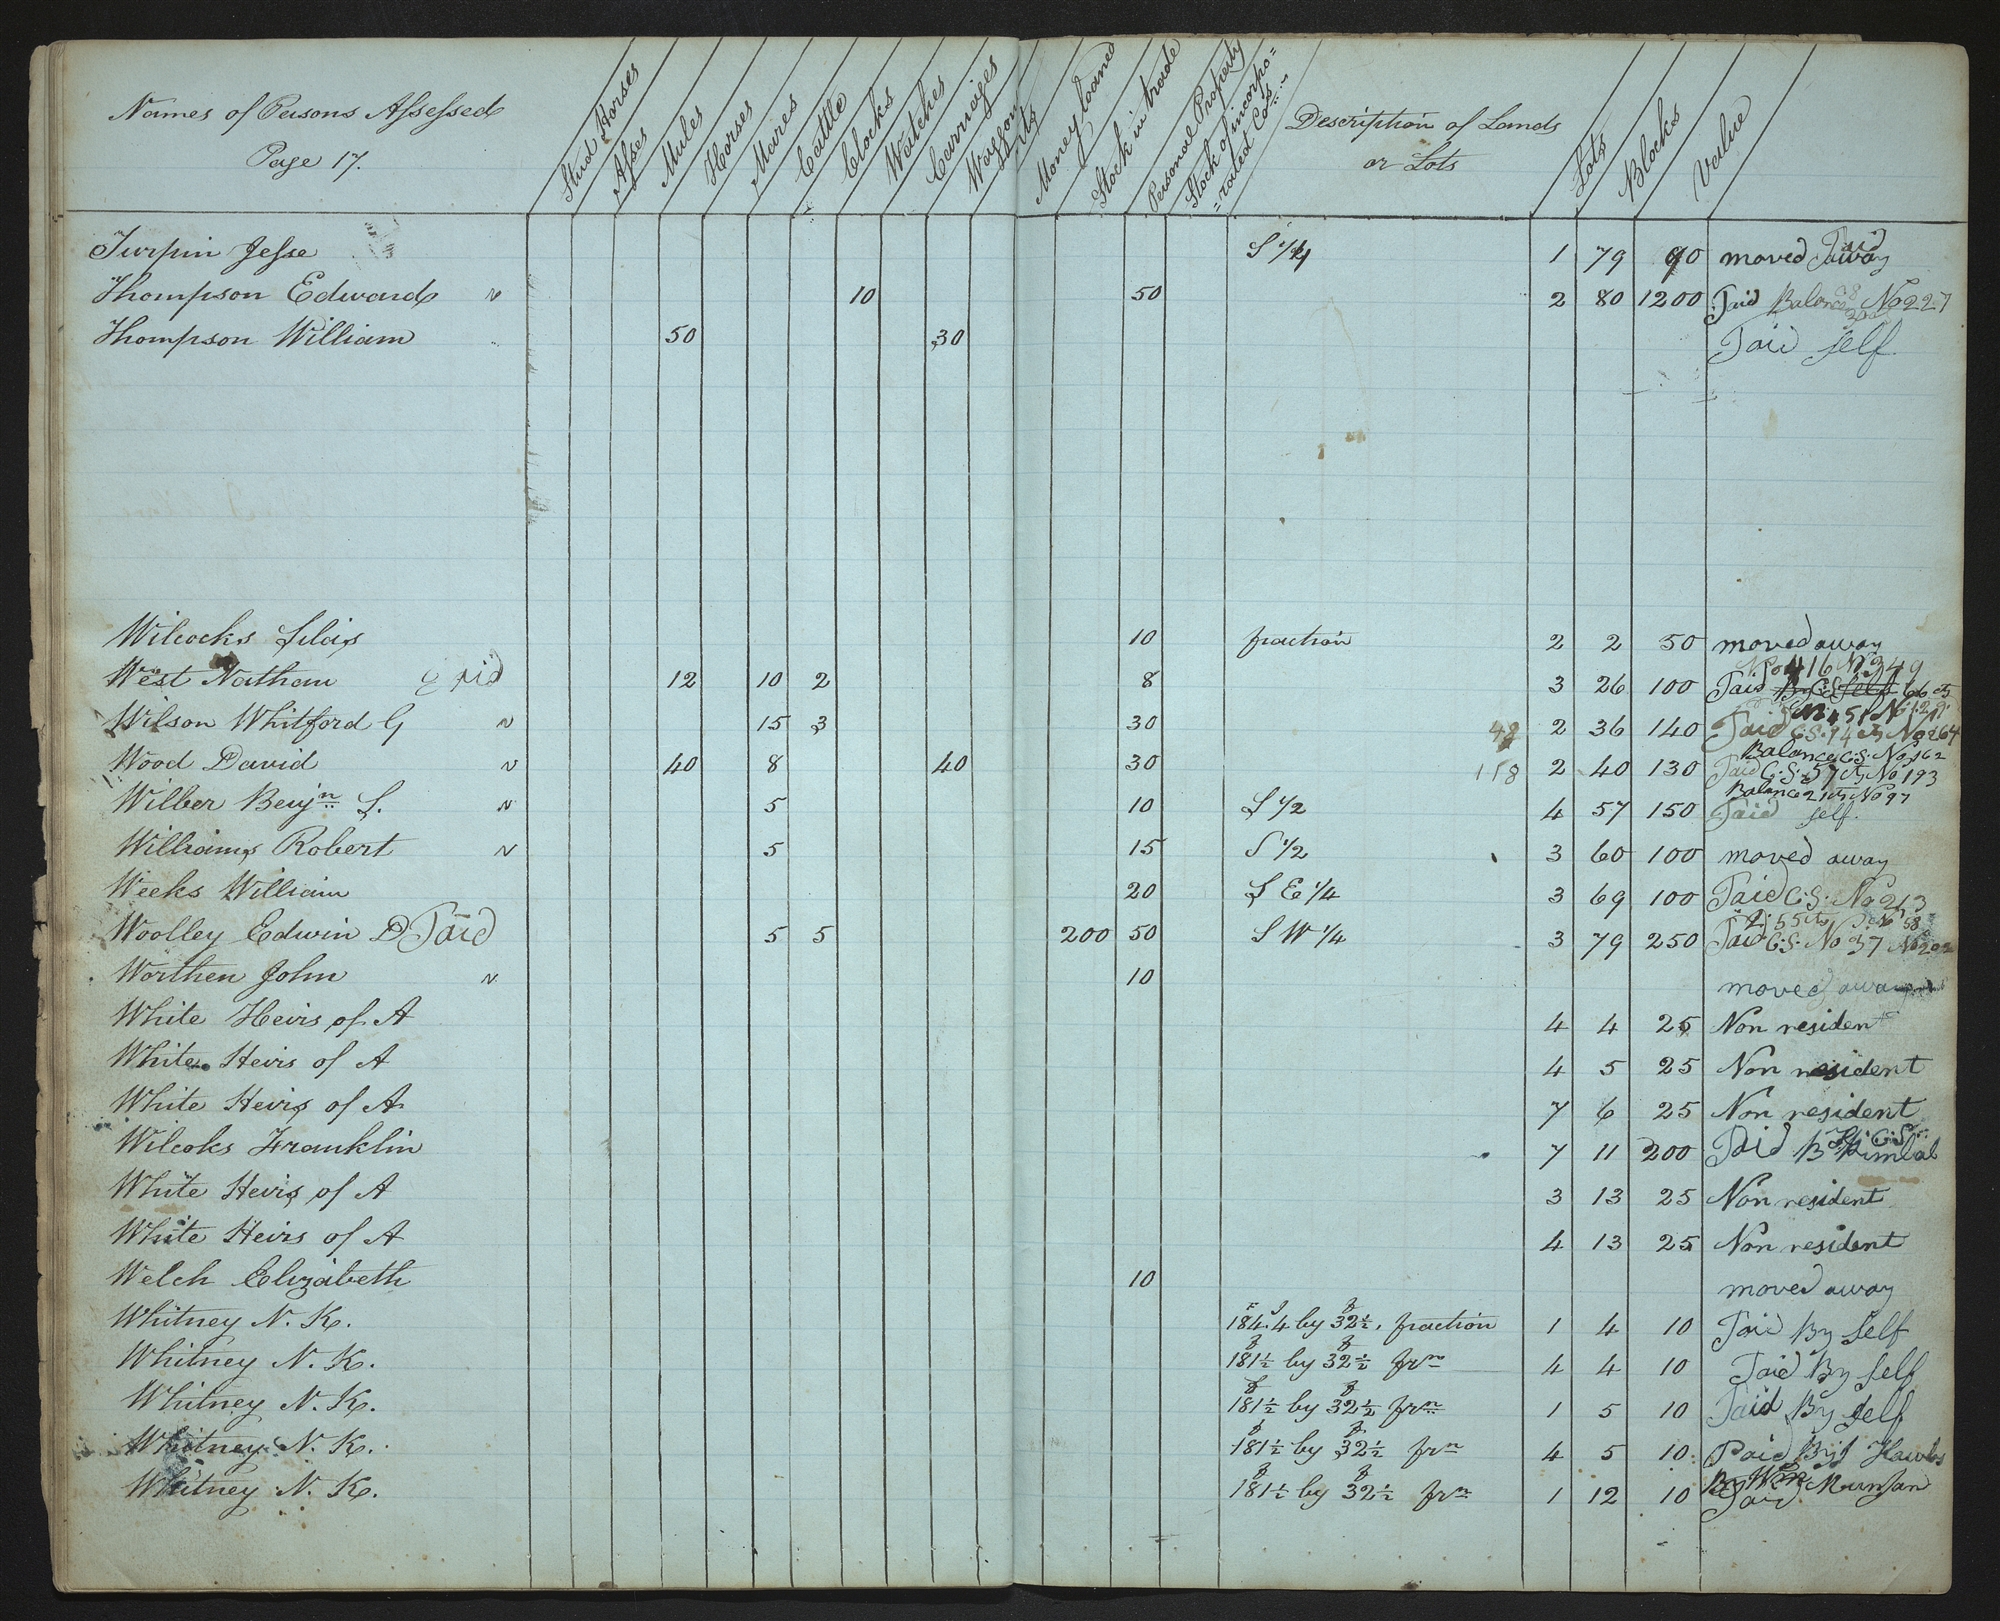 Names of Persons Assessed
Page 17.
Stud Horses
Asses
Mules
Horses
Mares
Cattle
Clocks
Watches
Carriages
Waggons
Money loaned
Stock in trade
Personal Property
Stock of incorpo=
=rated Cos
Description of Lands
or Lots
Lots
Blocks
Value
Turpin Jesse S 1/4 1 79 90 moved away Paid
Thompson Edward 10 50 2 80 1200 Paid Balance No 227
Thompson William 50 30 Paid self
Wilcocks Silas 10 fraction 2 2 50 moved away
West Nathan Paid 12 10 2 8 3 26 100 Paid
Wilson Whitford G 15 3 30 2 36 140 Paid C.S.
Wood David 40 8 40 30 2 40 130 Balance C.S. No 162 Paid C.S. 57 cts No 193
Wilber Benjn S. 5 10 S 1/2 4 57 150 Balance 21 cts No 97 Paid self.
Williams Robert 5 15 S 1/2 3 60 100 moved away
Weeks William 20 S E 1/4 3 69 100 Paid C.S. No 213
Woolley Edwin D Paid 5 5 200 50 S W 1/4 3 79 250 Paid C.S. No 37
Worthen John 10 moved away
White Heirs of A 4 4 25 Non resident
White Heirs of A 4 5 25 Non resident
White Heirs of A 7 6 25 Non resident
Wilcoks Franklin 7 11 200 Paid Kimbal
White Heirs of A 3 13 25 Non resident
White Heirs of A 4 13 25 Non resident
Welch Elizabeth 10 moved away
Whitney N. K. 184.4 by 32½, fraction 1 4 10 Paid By self
Whitney N. K. 181½ by 32½ frn 4 4 10 Paid By self
Whitney N. K. 181½ by 32½ frn 1 5 10 Paid By self
Whitney N. K. 181½ by 32½ frn 4 5 10 Paid By
Whitney N. K. 181½ by 32½ frn 1 12 10 Paid By Wm